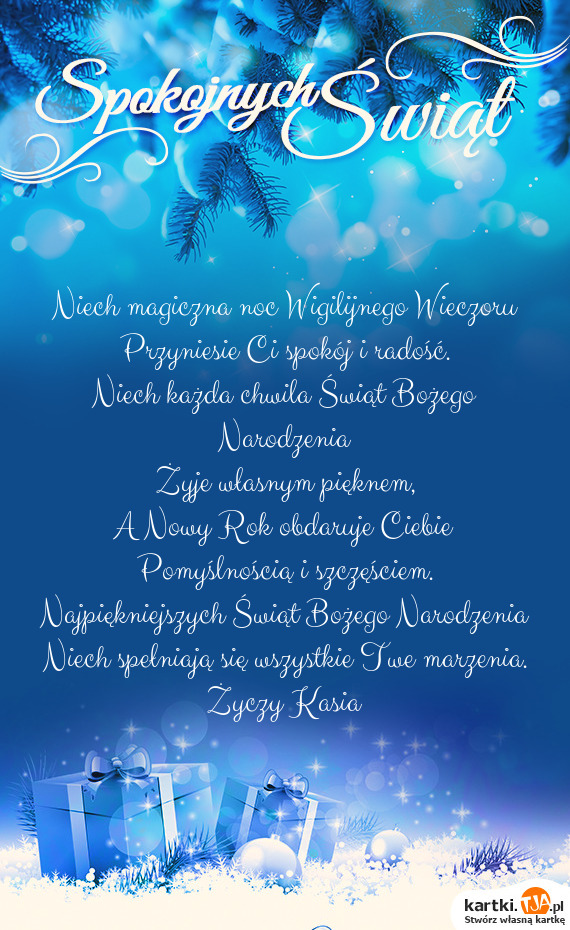 Spokojnych Świąt
Niech magiczna noc Wigilijnego Wieczoru
Przyniesie Ci spokój i radość.
Niech każda chwila Świąt Bożego
Narodzenia
Żyje własnym pięknem,
A Nowy Rok obdaruje Ciebie
Pomyślnością i szczęściem.
Najpiękniejszych Świąt Bożego Narodzenia
Niech spełniają się wszystkie Twe marzenia.
Życzy Kasia
kartki.TJA.pl
Stwórz własną kartkę